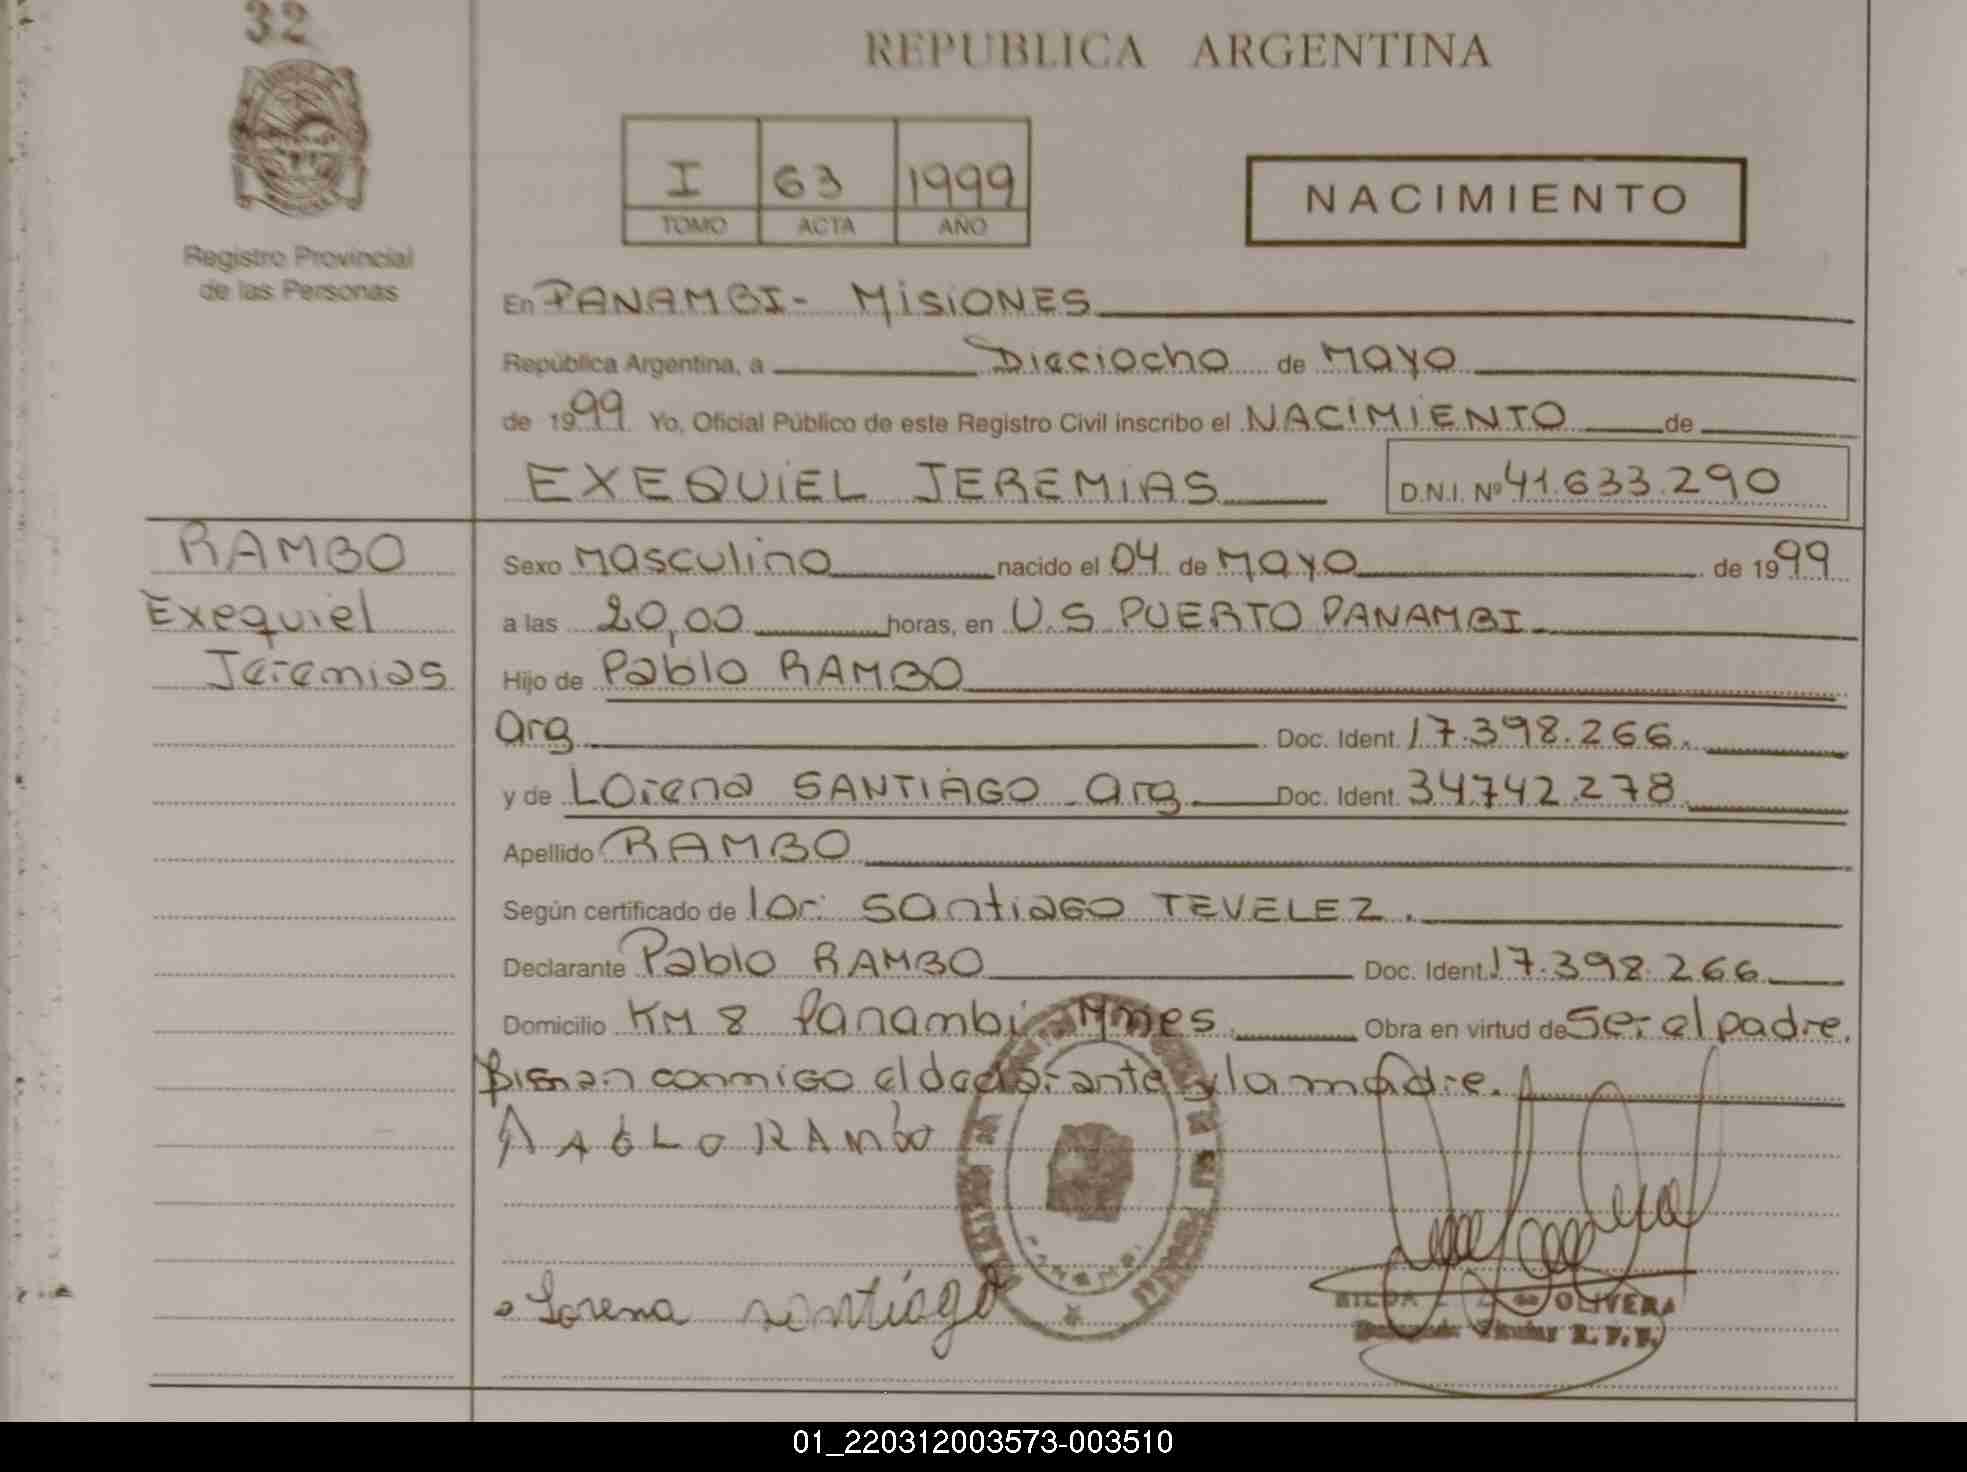 32
REPUBLICA ARGENTINA
I 63 1999
TOMO ACTA AÑO
NACIMIENTO
Registro Provincial
de las Personas
En PANAMBI - MISIONES
República Argentina, a Dieciocho de MAYO
de 1999 Yo, Oficial Público de este Registro Civil inscribo el NACIMIENTO de
EXEQUIEL JEREMIAS D.N.I. Nº 41.633.290
RAMBO
Exequiel
Jeremias
Sexo Masculino nacido el 04 de MAYO de 1999
a las 20,00 horas, en U.S PUERTO PANAMBI
Hijo de Pablo RAMBO
Arg Doc. Ident. 17.398.266.
y de Lorena SANTIAGO Arg Doc. Ident. 34.742.278
Apellido RAMBO
Según certificado de Santiago TEVELEZ.
Declarante Pablo RAMBO Doc. Ident. 17.398.266
Domicilio KM 8 Panambi Mnes Obra en virtud de Ser el padre.
conmigo el declarante y la madre.
PABLO RAMBO
PANAMBI
Lorena santiago
HILDA de OLIVERA
Titular R.P.P.
01_220312003573-003510